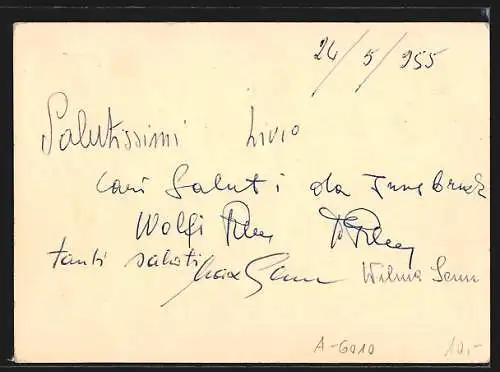 24/5/955
Salutissimi Livio
Cari Saluti da Innsbruck
Wolfi
tanti saluti Max Senn Wilma Senn
A-6010 10,-